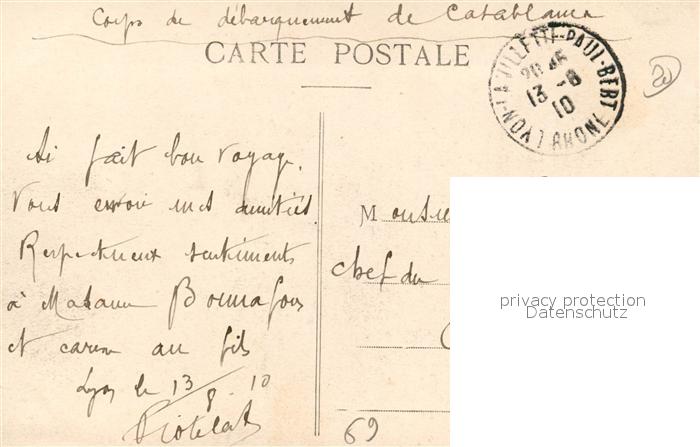 Corps de débarquement de Casablanca
CARTE POSTALE
LYON-LA VILLETTE-PAUL-BERT
20 45
13 -8
10
RHONE
Ai fait bon voyage.
Vous envoie mes amitiés
Respectueux sentiments
à Madame Bonnafous
et au fils
Lyon le 13/8 10
Monsie
chef du
privacy protection
Datenschutz
69